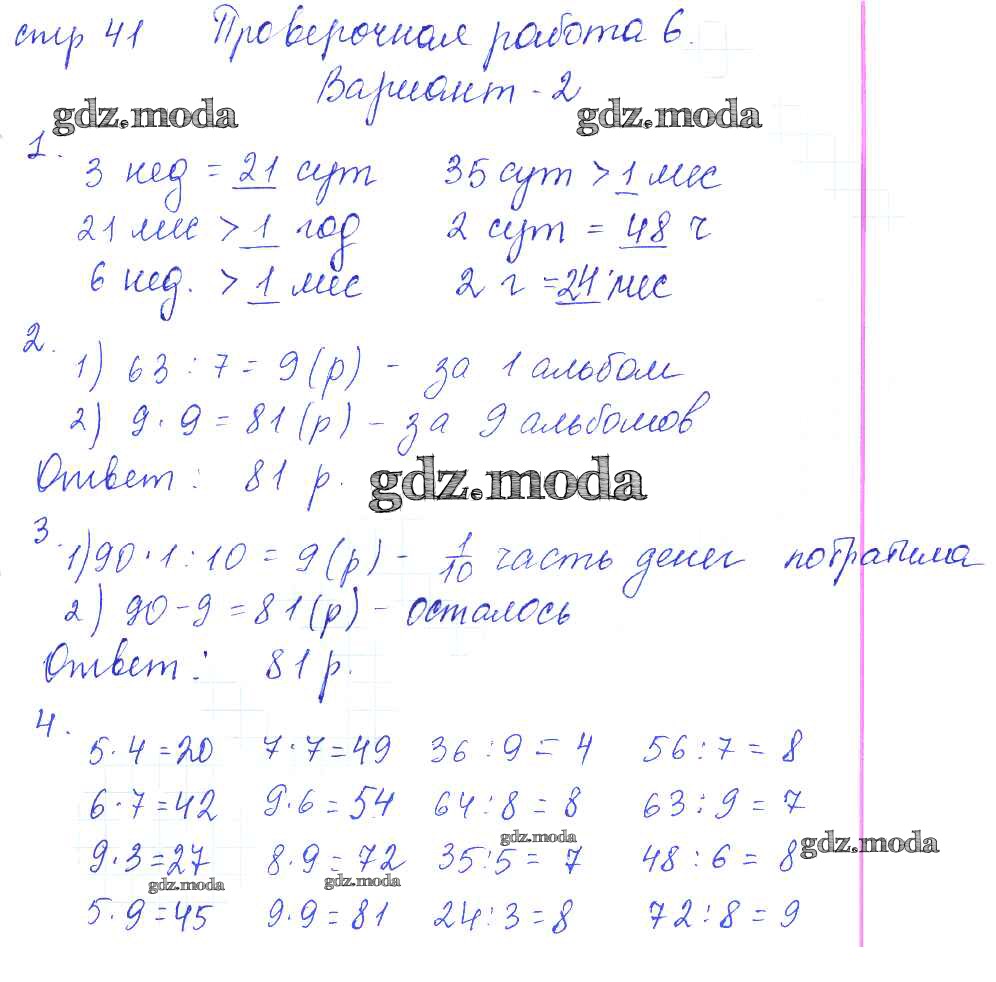 стр 41 Проверочная работа 6.
Вариант - 2
gdz.moda gdz.moda
1.
3 нед = 21 сут 35 сут > 1 мес
21 мес > 1 год 2 сут = 48 ч
6 нед. > 1 мес 2 г = 24 мес
2.
1) 63 : 7 = 9 (р) - за 1 альбом
2) 9 · 9 = 81 (р) - за 9 альбомов
Ответ : 81 р.
gdz.moda
3.
1) 90 · 1 : 10 = 9 (р) - 1/10 часть денег потратила
2) 90 - 9 = 81 (р) - осталось
Ответ : 81 р.
4.
5 · 4 = 20 7 · 7 = 49 36 : 9 = 4 56 : 7 = 8
6 · 7 = 42 9 · 6 = 54 64 : 8 = 8 63 : 9 = 7
gdz.moda gdz.moda
9 · 3 = 27 8 · 9 = 72 35 : 5 = 7 48 : 6 = 8
gdz.moda gdz.moda
5 · 9 = 45 9 · 9 = 81 24 : 3 = 8 72 : 8 = 9